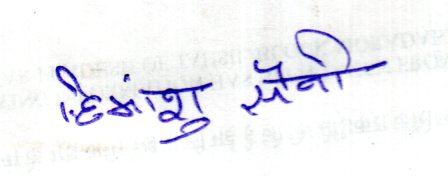 हिमांशु सैनी